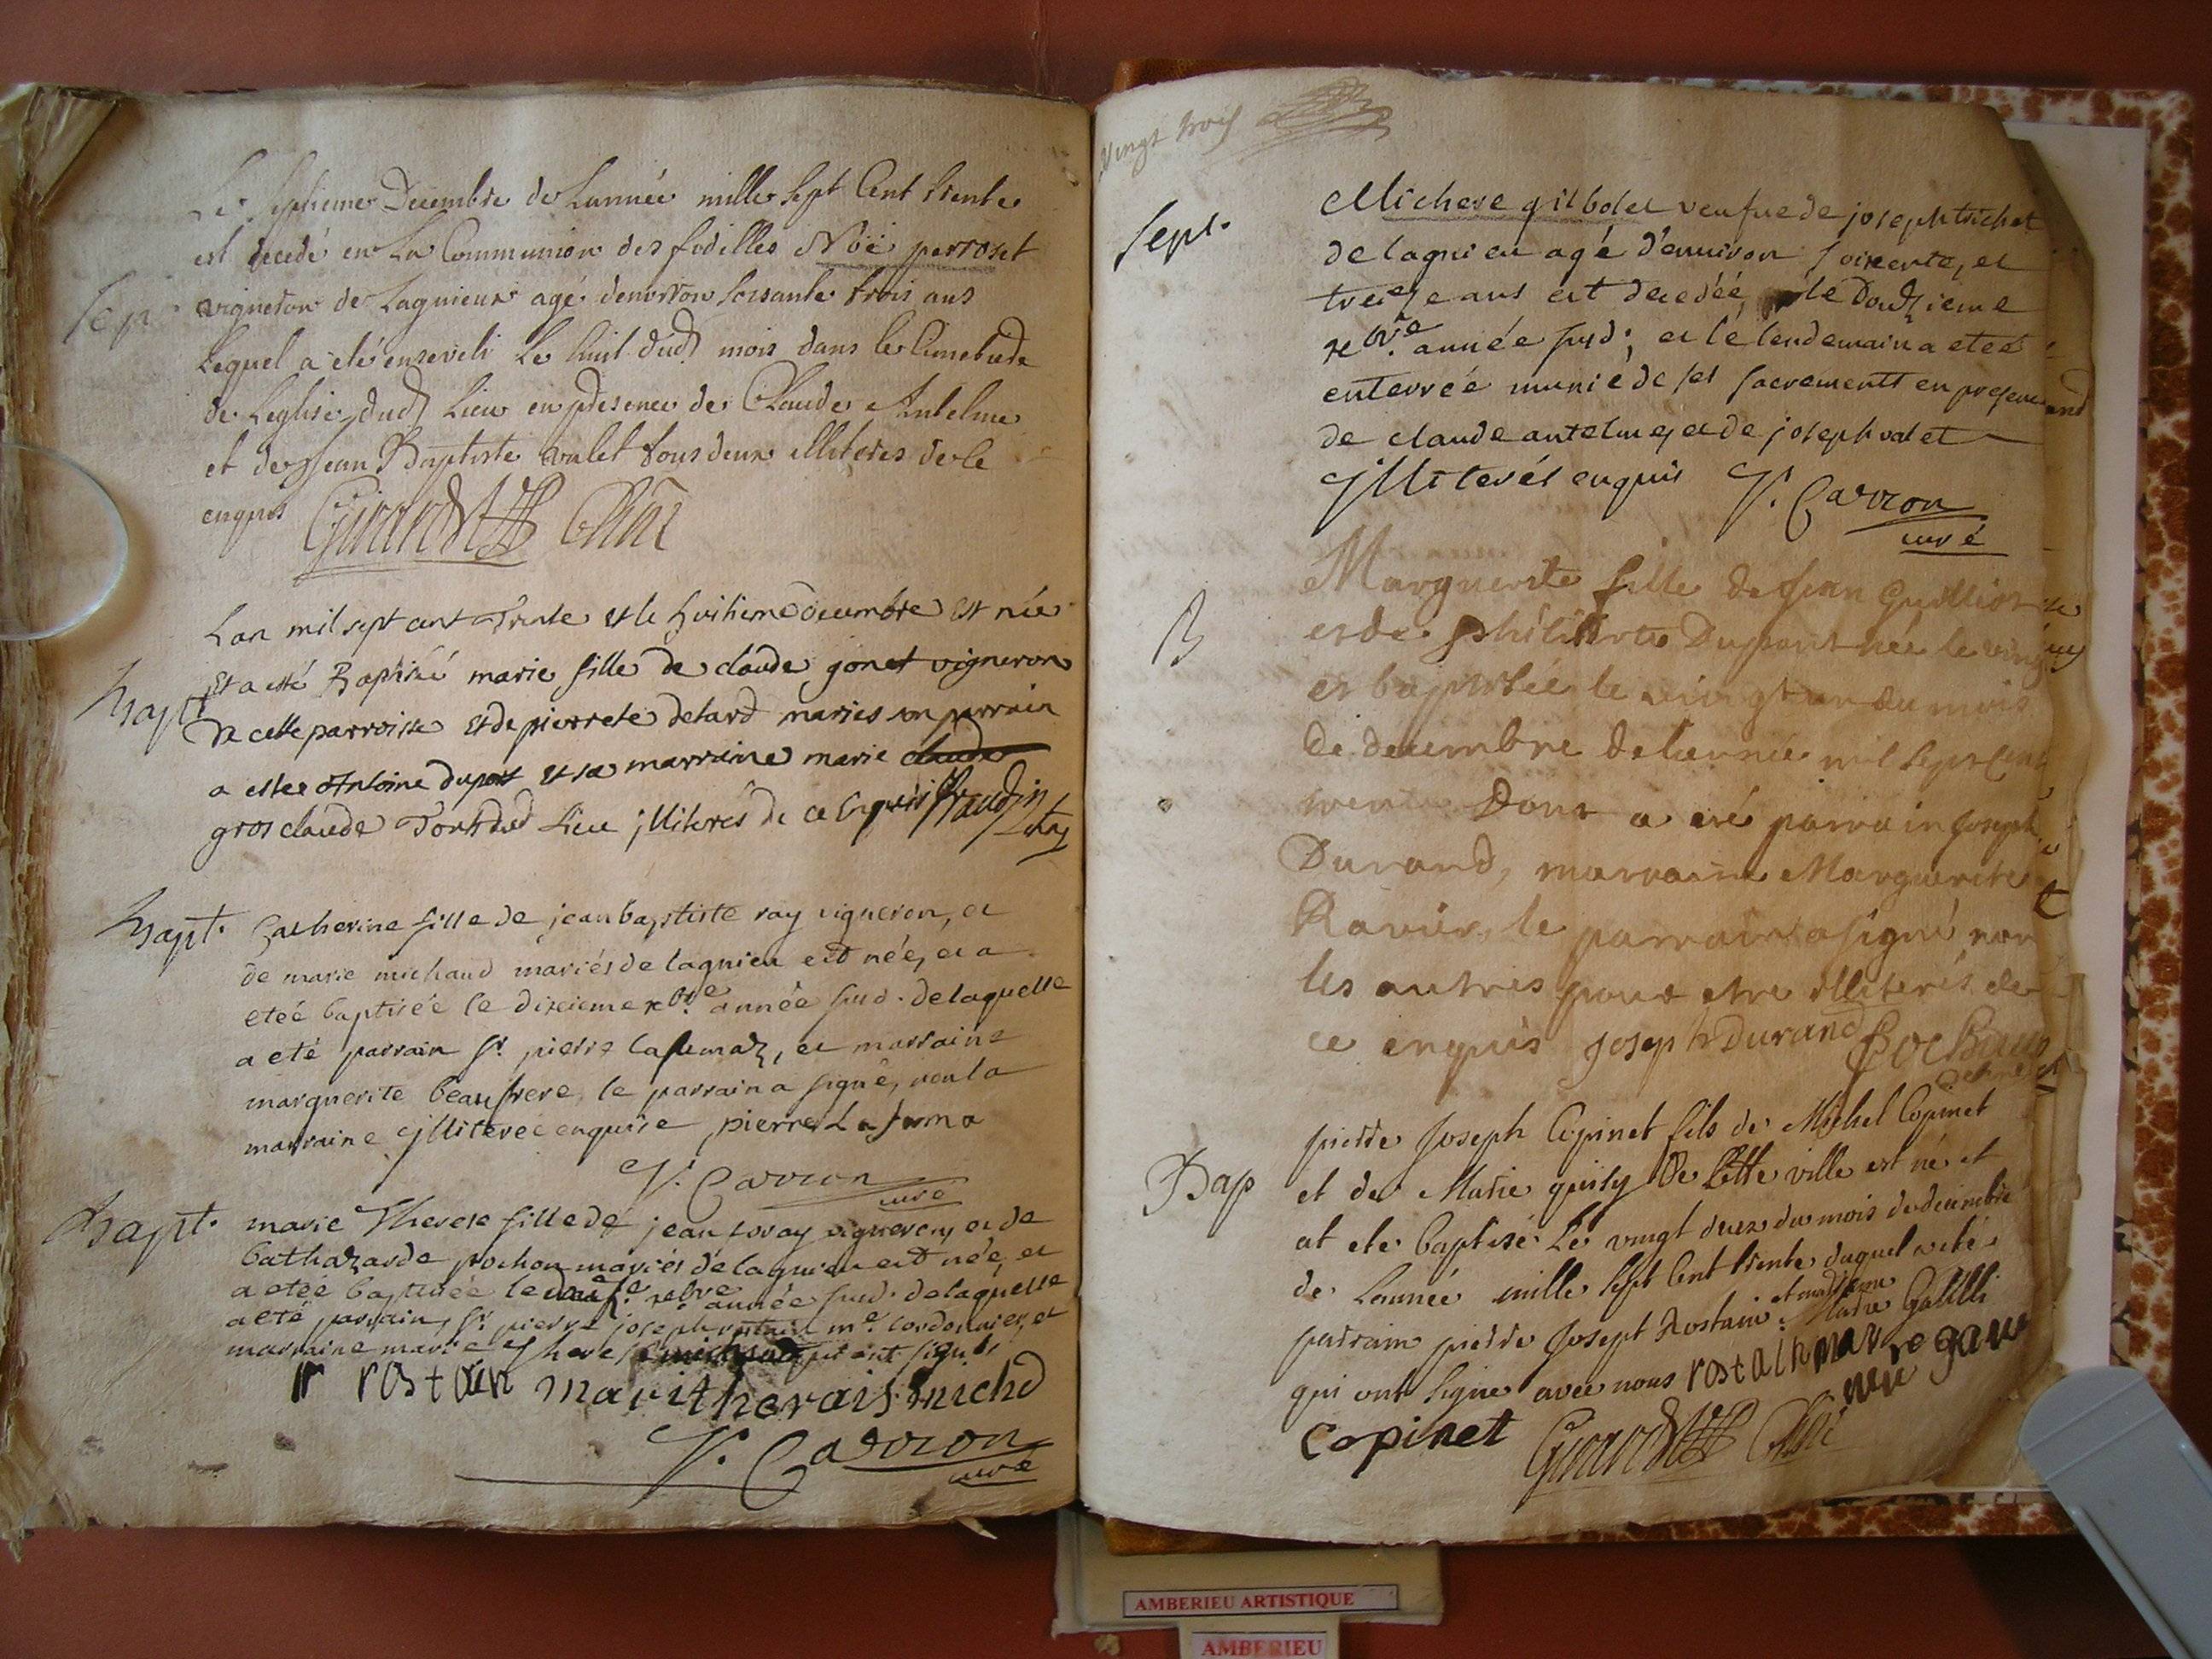 Le septieme Decembre de Lannée mille sept Cent trente
est decedé en La Communion des fidilles Noë perroset
Sep
vigneron de Lagnieux agé denviron soissante trois ans
Lequel a eté enseveli Le huit dud mois dans le Cimetiere
de Leglise dud Lieu en presence de Claude Antelme
et de Jean Baptiste valet tous deux illiteres de ce
enquis
Lan mil sept cent Trente et le huitieme decembre est née
et a esté Baptisée marie fille de claude gonet vigneron
Bapt
De cette parroisse et de pierrete detard maries son parrain
a estee Antoine dupont et sa marraine marie claude
gros claude Tous dud Lieu illiterés de ce Enquis
Bapt.
Catherine fille de jean baptiste ray vigneron, et
de marie michaud mariés de lagnieu est née, et a
eteé baptiseé le dixieme xbre année sud. de laquelle
a eté parrain sr. pierre lasumaz, et marraine
marguerite beaufrere, le parrain a signé, non la
marraine illitereé enquise pierre La
Carron
curé
Bapt.
marie Therese fille de jean vigneron, et de
bathazarde pochon mariés de lagnieu est née, et
a eteé baptiseé le xbre année sud. de laquelle
a eté parrain, sr. pierre joseph rostain me. cordonnier, et
marraine marie therese qui ont signés
rostain mari therais michd
Carron
curé
vingt trois
Sept.
Michere gilbolet veufue de joseph trichet
de lagnieu agé d'enuiron soixente, et
treize ans est decedeé, le Douzieme
xbre. année sud; et le lendemain a eteé
enterreé munie de ses sacrements en presence
de claude antelme, et de joseph valet
illiterés enquis Carron
curé
B
Marguerite fille de Jean Guilliot
et de philiberte Dupont née le vingt
et baptisée le vingt un du mois
de decembre de lannée mil sept Cent
trente Dont a eté parrain Joseph
Durand, marraine Marguerite
Ravier, le parrain a signé non
les autres pour etre illiterés de
ce enquis Joseph Durand
Bap
pierre Joseph Copinet fils de Michel Copinet
et de Marie de Cette ville est né et
at ete baptisé Le vingt deux du mois de decembre
de Lannée mille sept Cent trente duquel a eté
parrain pierre Josept Rostain et marraine Marie
qui ont signe avec nous rostain
copinet
AMBERIEU ARTISTIQUE
AMBERIEU